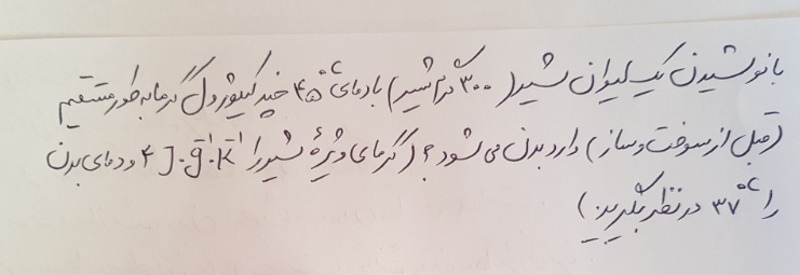 با نوشیدن یک لیوان شیر (۳۰۰ گرم شیر) با دمای ۴۵°C چند کیلوژول گرما به طور مستقیم
(قبل از سوخت و ساز) وارد بدن می شود؟ (گرمای ویژهٔ شیر را ۴ J·g⁻¹·K⁻¹ و دمای بدن
را ۳۷°C در نظر بگیرید)